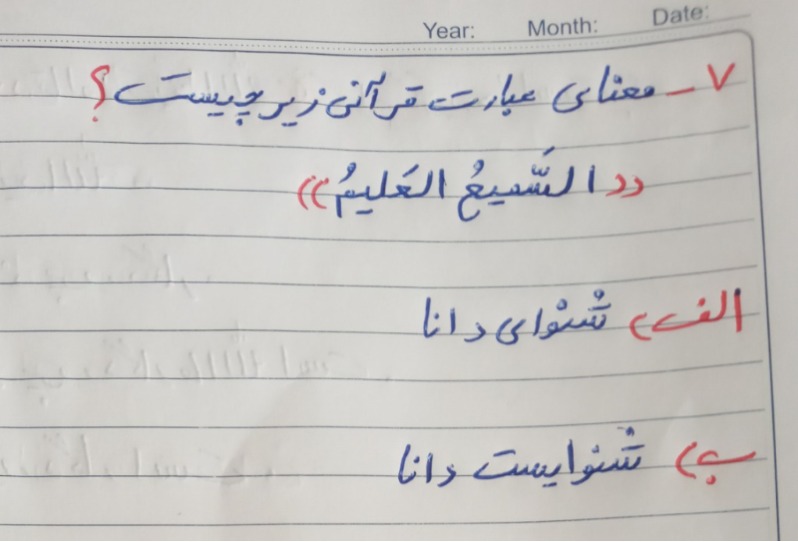 Year: Month: Date:
۷ - معنای عبارت قرآنی زیر چیست؟
«السَّمیعُ العَلیمُ»
الف) شنوای دانا
ب) شنوایست دانا